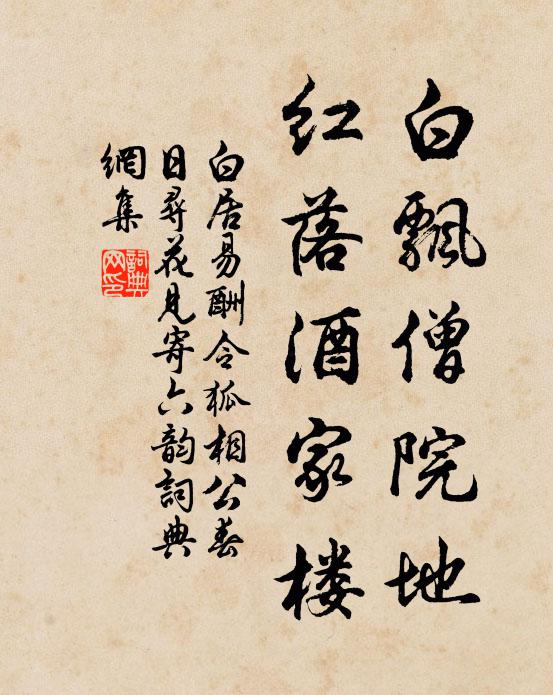 白飘僧院地
红落酒家楼
白居易酬令狐相公春
日尋花見寄六韵詞典
網集
詞典網印